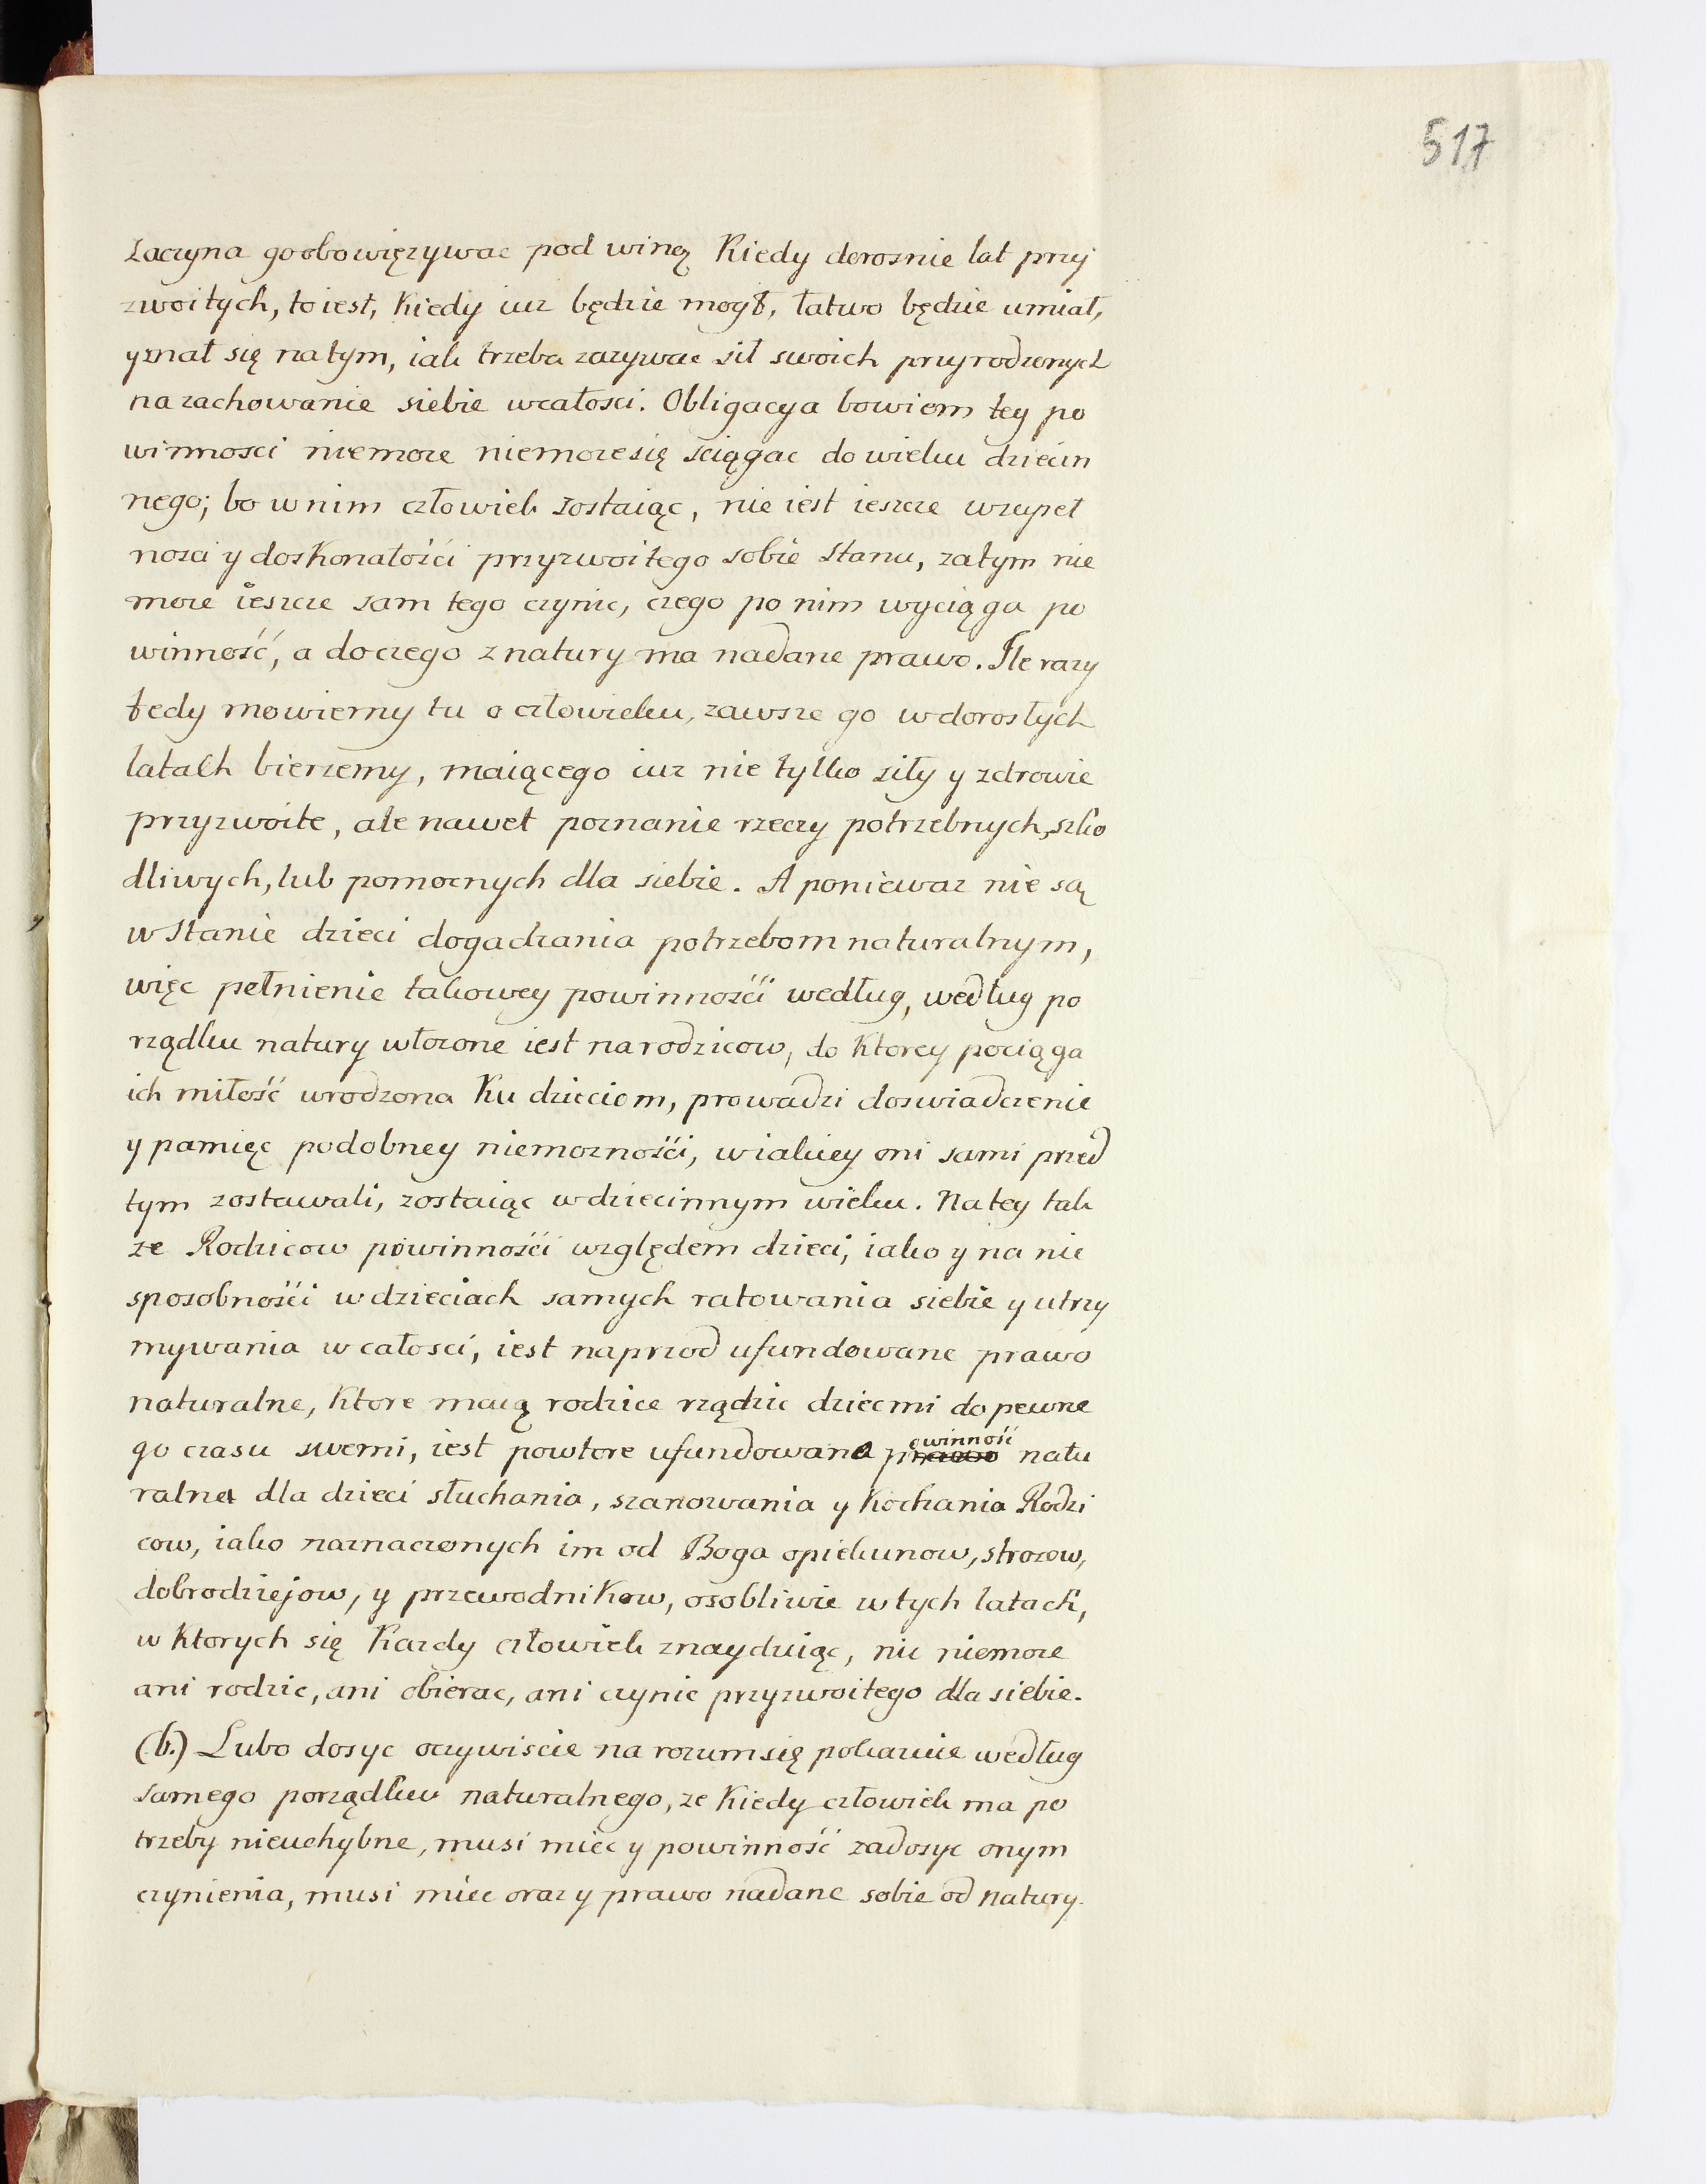 517
zaczyna goobowięzywac pod winą Kiedy dorosnie lat przy
zwoitych, toiest, Kiedy iuz będzie mogł, łatwo będzie umiał,
yznał się natym, iak trzeba zazywac sił swoich przyrodzonych
nazachowanie siebie wcałosci. Obligacya bowiem tey po
winnosci niemoze niemozesię sciągac do wieku dziecin
nego; bo wnim człowiek zostaiąc, nie iest ieszcze wzupeł
nosci y doskonałości przyzwoitego sobie stanu, zatym nie
moze ieszcze sam tego czynic, czego po nim wyciąga po
winność, a doczego z natury ma nadane prawo. Ile razy
tedy mowiemy tu o człowieku, zawsze go wdorosłych
latach bierzemy, maiącego iuz nie tylko siły y zdrowie
przyzwoite, ale nawet poznanie rzeczy potrzebnych, szko
dliwych, lub pomocnych dla siebie. A poniewaz nie są
wstanie dzieci dogadzania potrzebom naturalnym,
więc pełnienie takowey powinności według, według po
rządku natury włozone iest narodzicow, do Ktorey pociąga
ich miłość urodzona Ku dzieciom, prowadzi doswiadczenie
y pamięc podobney niemozności, wiakiey oni sami przed
tym zostawali, zostaiąc wdziecinnym wieku. Natey tak
ze Rodzicow powinności względem dzieci, iako y na nie
sposobności wdzieciach samych ratowania siebie y utrzy
mywania w całosci, iest naprzod ufundowane prawo
naturalne, Ktore maią rodzice rządzic dziecmi do pewne
go czasu swemi, iest powtore ufundowana powinność natu
ralna dla dzieci słuchania, szanowania y Kochania Rodzi
cow, iako naznaczonych im od Boga opiekunow, strozow,
dobrodziejow, y przewodnikow, osobliwie wtych latach,
w Ktorych się Kazdy człowiek znayduiąc, nic niemoze
ani rodzic, ani obierac, ani czynic przyzwoitego dla siebie.
(b.) Lubo dosyc oczywiscie na rozumsię pokazuie według
samego porządku naturalnego, ze Kiedy człowiek ma po
trzeby nieuchybne, musi miec y powinność zadosyc onym
czynienia, musi miec oraz y prawo nadane sobie od natury.